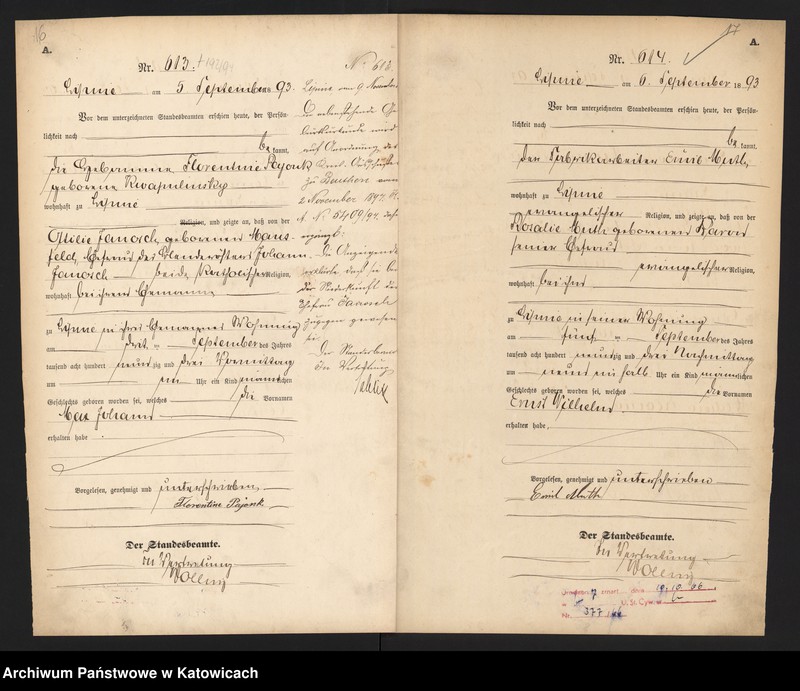 16
A.
Nr. 613.
Lipine am 5 September 93.
Vor dem unterzeichneten Standesbeamten erschien heute, der Persön-
lichkeit nach
be kannt,
die Hebamme Florentine Pajonk
geborene
wohnhaft zu Lipine
Religion, und zeigte an, daß von der
Ottilie Janosch, geborenen Mans-
feld, Ehefrau des Johann
Janosch beide katholischer Religion,
wohnhaft bei ihrem Ehemann
zu Lipine in ihres Ehemannes Wohnung
am drit September des Jahres
tausend acht hundert neunzig und drei Vormittag
um ein Uhr ein Kind männlichen
Geschlechts geboren worden sei, welches die Vornamen
Max Johann
erhalten habe
Vorgelesen, genehmigt und unterschrieben.
Florentine Pajonk
Der Standesbeamte.
In Vertretung
Wollny
No 613.
Lipine am 9 November
nebenstehende Ge-
burtsurkunde wird
auf Anordnung des
zu Beuthen vom
2 November 1894
ergänzt:
Die Anzeigende
erklärte daß sie bei
der Niederkunft der
Ehefrau Janosch
zugegen gewesen
sei.
Der Standesbeamte
In Vertretung
17
A.
Nr. 614.
Lipine am 6. September 1893
Vor dem unterzeichneten Standesbeamten erschien heute, der Persön-
lichkeit nach
be kannt,
der Fabrikarbeiter Emil Muth,
wohnhaft zu Lipine
evangelischer Religion, und zeigte an, daß von der
Rosalie Muth geborenen Baron
seiner Ehefrau
evangelischer Religion,
wohnhaft bei ihm
zu Lipine in seiner Wohnung
am fünf September des Jahres
tausend acht hundert neunzig und drei Nachmittag
um neun ein halb Uhr ein Kind männlichen
Geschlechts geboren worden sei, welches die Vornamen
Ernst Wilhelm
erhalten habe.
Vorgelesen, genehmigt und unterschrieben
Emil Muth
Der Standesbeamte.
In Vertretung
Wollny
Nr. 377
Archiwum Państwowe w Katowicach